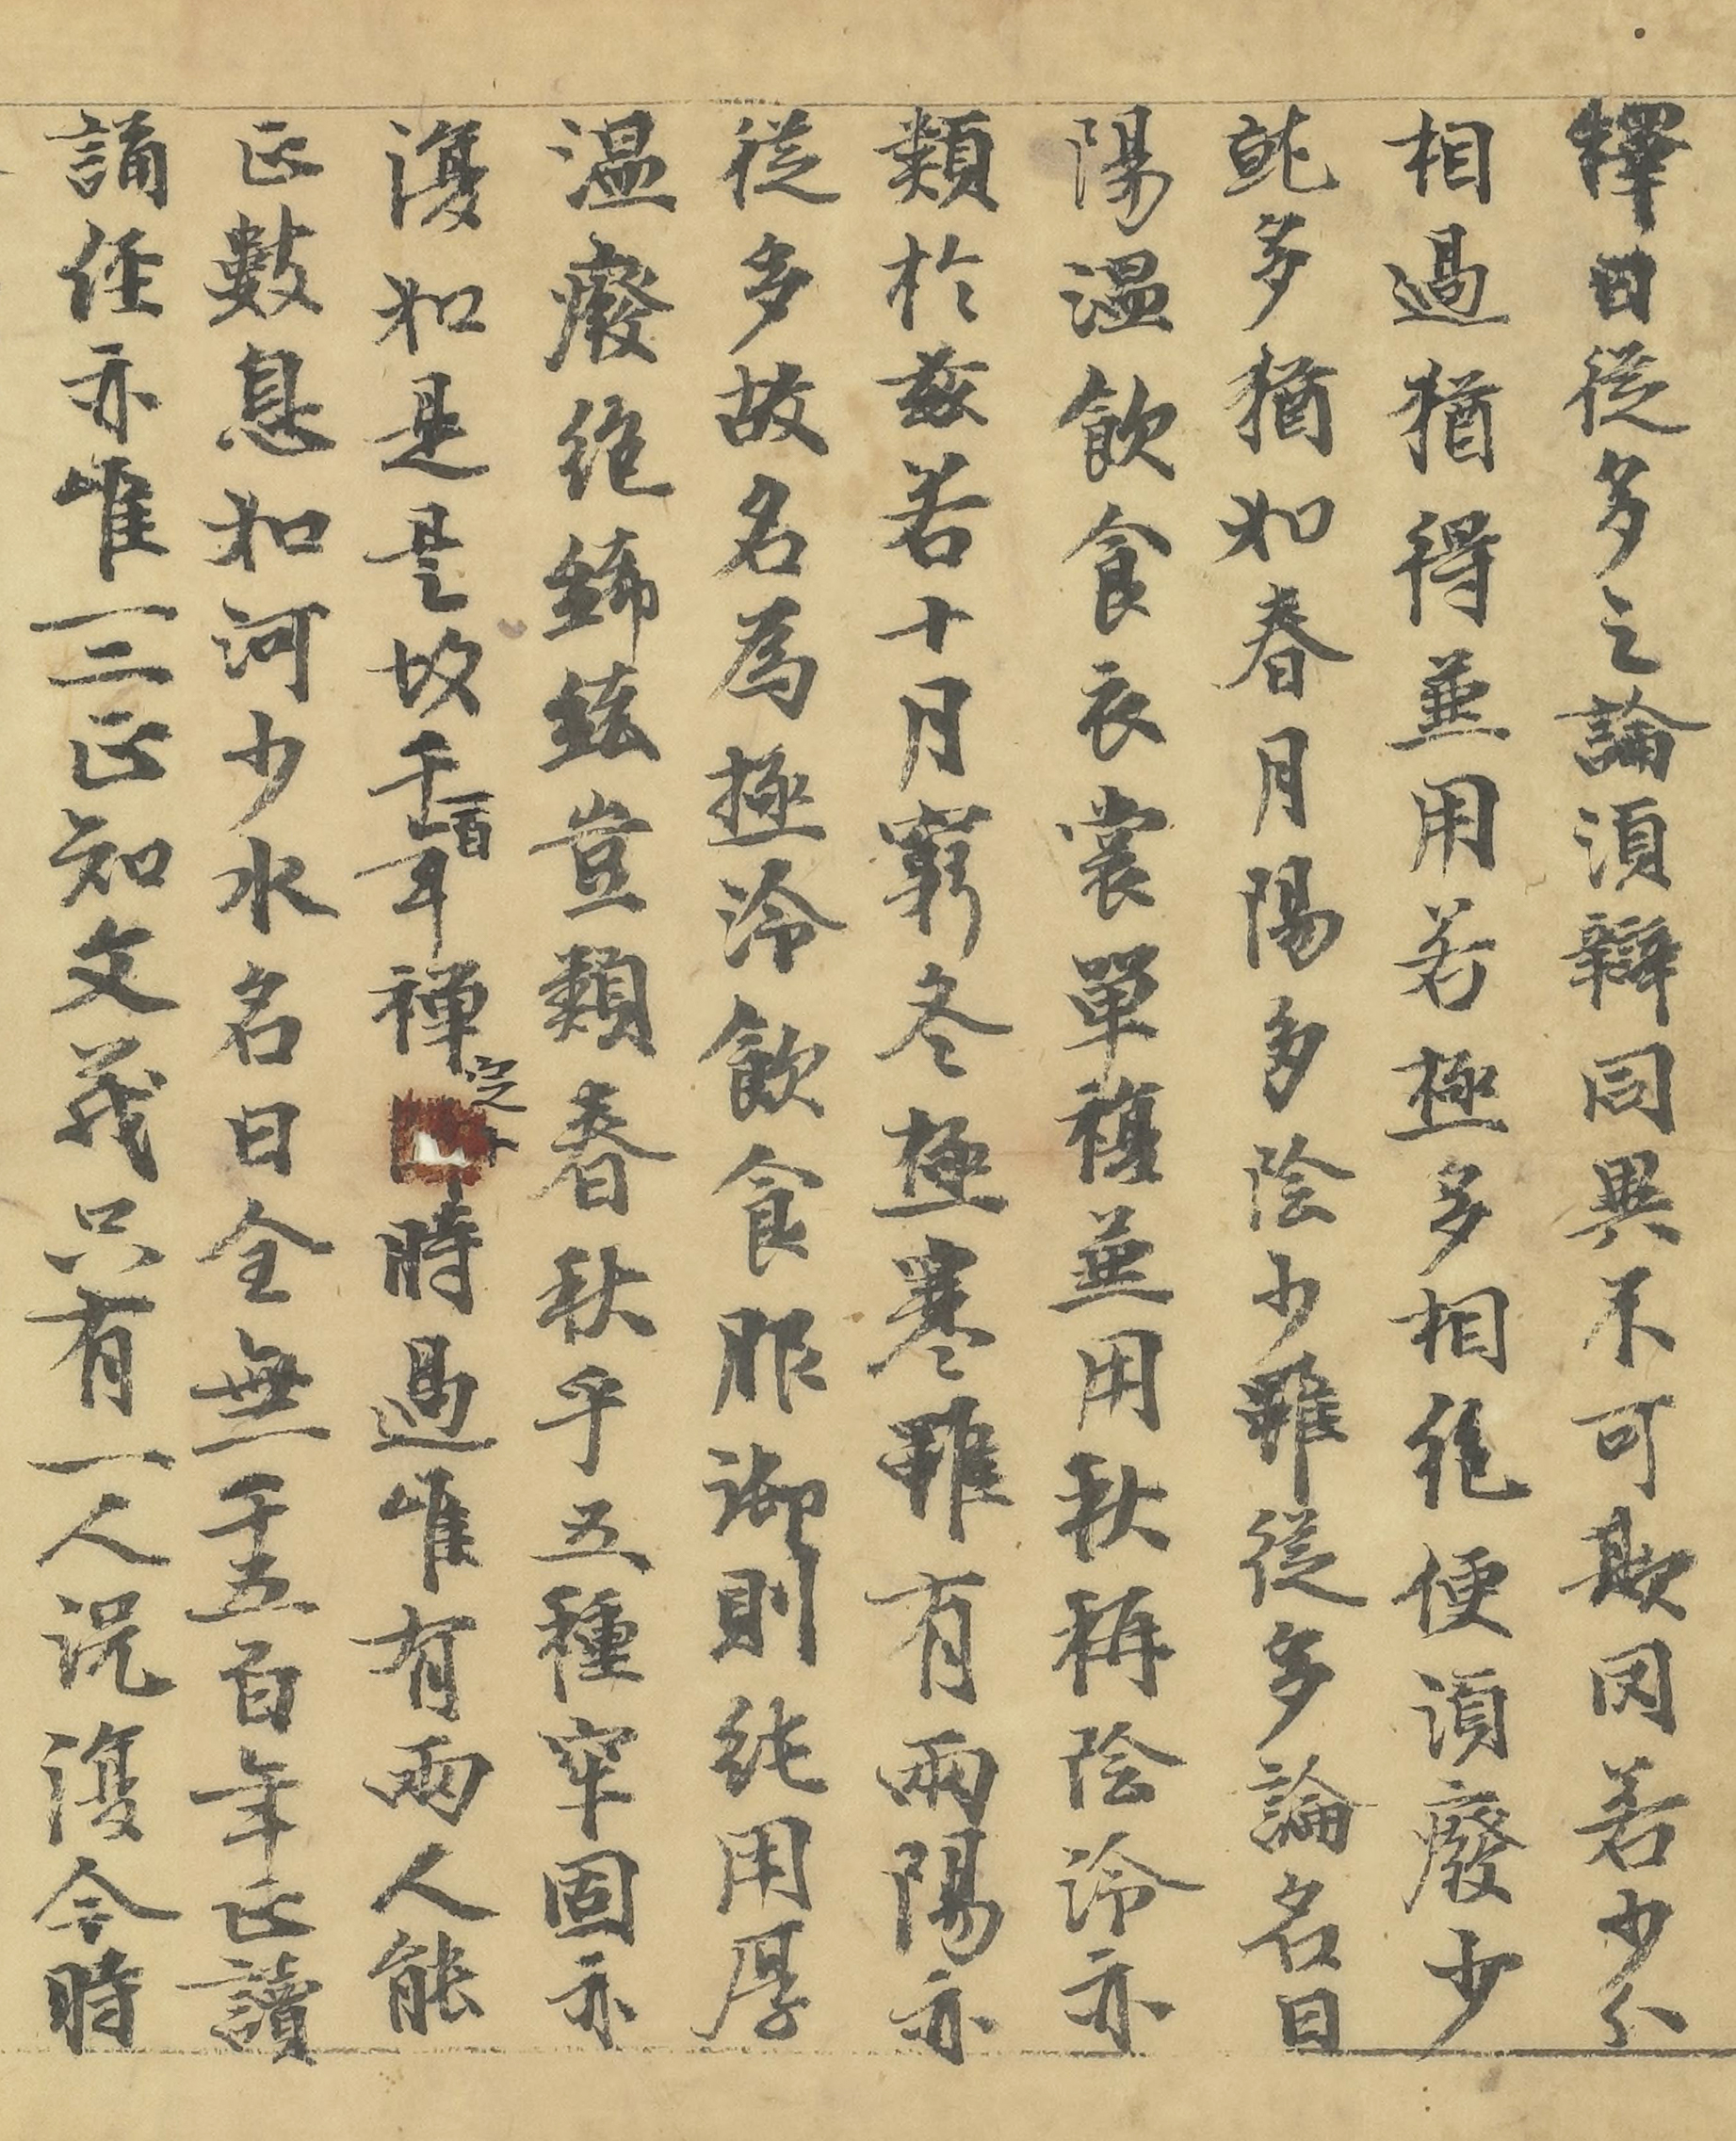 釋曰從多之論須辯同異不可欺罔若少分
相過猶得並用若極多相絕便須廢少
就多猶如春月陽多陰少雖從多論名曰
陽溫飲食衣裳單複並用秋稱陰冷亦
類於茲若十月窮冬極寒雖有兩陽亦
從多故名為極冷飲食服御則純用厚
溫廢絕豈類春秋乎五種牢固亦
復如是是故千一百年禪定時過唯有兩人能
正數息如河少水名曰全無千五百年正讀
誦經亦唯一二正知文義只有一人況復今時